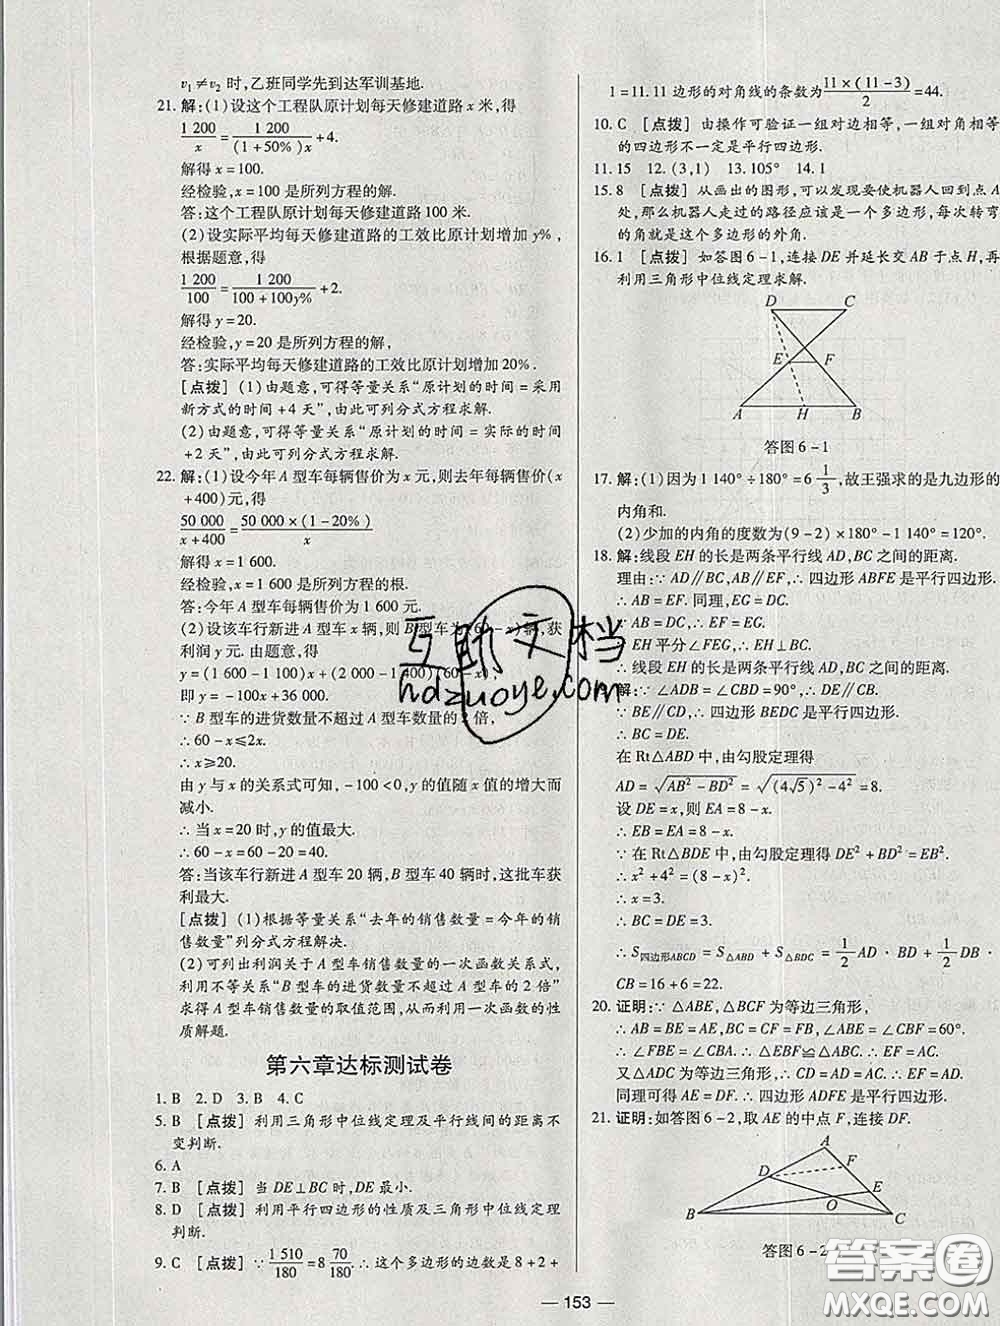 v₁≠v₂ 时,乙班同学先到达军训基地.
21. 解:(1)设这个工程队原计划每天修建道路 x 米,得
1 200/x = 1 200/((1+50%)x) + 4.
解得 x=100.
经检验,x=100 是所列方程的解.
答:这个工程队原计划每天修建道路 100 米.
(2)设实际平均每天修建道路的工效比原计划增加 y%,
根据题意,得
1 200/100 = 1 200/(100+100y%) + 2.
解得 y=20.
经检验,y=20 是所列方程的解,
答:实际平均每天修建道路的工效比原计划增加 20%.
[点拨] (1)由题意,可得等量关系“原计划的时间=采用
新方式的时间+4 天”,由此可列分式方程求解.
(2)由题意,可得等量关系“原计划的时间=实际的时间
+2 天”,由此可列分式方程求解.
22. 解:(1)设今年 A 型车每辆售价为 x 元,则去年每辆售价(x
+400)元,得
50 000/(x+400) = 50 000×(1-20%)/x
解得 x=1 600.
经检验,x=1 600 是所列方程的根.
答:今年 A 型车每辆售价为 1 600 元.
(2)设该车行新进 A 型车 x 辆,则 B 型车为(60-x)辆,获
利润 y 元. 由题意,得
y=(1 600-1 100)x+(2 000-1 400)(60-x),
即 y=-100x+36 000.
∵ B 型车的进货数量不超过 A 型车数量的 2 倍,
∴ 60-x≤2x.
∴ x≥20.
由 y 与 x 的关系式可知,-100<0,y 的值随 x 的值的增大而
减小.
∴ 当 x=20 时,y 的值最大.
∴ 60-x=60-20=40.
答:当该车行新进 A 型车 20 辆,B 型车 40 辆时,这批车获
利最大.
[点拨] (1)根据等量关系“去年的销售数量=今年的销
售数量”列分式方程解决.
(2)可列出利润关于 A 型车销售数量的一次函数关系式,
利用不等关系“B 型车的进货数量不超过 A 型车的 2 倍”
求得 A 型车销售数量的取值范围,从而利用一次函数的性
质解题.
第六章达标测试卷
1. B 2. D 3. B 4. C
5. B [点拨] 利用三角形中位线定理及平行线间的距离不
变判断.
6. A
7. B [点拨] 当 DE⊥BC 时,DE 最小.
8. D [点拨] 利用平行四边形的性质及三角形中位线定理
判断.
9. C [点拨] ∵ 1 510/180 = 8 70/180, ∴ 这个多边形的边数是 8+2+
1=11. 11 边形的对角线的条数为 11×(11-3)/2 = 44.
10. C [点拨] 由操作可验证一组对边相等,一组对角相等
的四边形不一定是平行四边形.
11. 15 12. (3,1) 13. 105° 14. 1
15. 8 [点拨] 从画出的图形,可以发现要使机器人回到点 A
处,那么机器人走过的路径应该是一个多边形,每次转弯
的角就是这个多边形的外角.
16. 1 [点拨] 如答图 6-1,连接 DE 并延长交 AB 于点 H,再
利用三角形中位线定理求解.
D C
E F
A H B
答图 6-1
17. 解:(1)因为 1 140°÷180°=6 1/3,故王强求的是九边形的
内角和.
(2)少加的内角的度数为(9-2)×180°-1 140°=120°.
18. 解:线段 EH 的长是两条平行线 AD,BC 之间的距离.
理由:∵ AD∥BC,AB∥EF,∴ 四边形 ABFE 是平行四边形.
∴ AB=EF. 同理,EG=DC.
∵ AB=DC,∴ EF=EG.
∵ EH 平分∠FEG,∴ EH⊥BC.
∴ 线段 EH 的长是两条平行线 AD,BC 之间的距离.
解:∵ ∠ADB=∠CBD=90°,∴ DE∥CB.
∵ BE∥CD,∴ 四边形 BEDC 是平行四边形.
∴ BC=DE.
在 Rt△ABD 中,由勾股定理得
AD=√(AB²-BD²)=√((4√5)²-4²)=8.
设 DE=x,则 EA=8-x.
∴ EB=EA=8-x.
∵ 在 Rt△BDE 中,由勾股定理得 DE²+BD²=EB².
∴ x²+4²=(8-x)².
∴ x=3.
∴ BC=DE=3.
∴ S四边形ABCD=S△ABD+S△BDC=1/2 AD·BD+1/2 DB·
CB=16+6=22.
20. 证明:∵ △ABE,△BCF 为等边三角形,
∴ AB=BE=AE,BC=CF=FB,∠ABE=∠CBF=60°.
∴ ∠FBE=∠CBA. ∴ △FBE≌△CBA. ∴ EF=AC.
又∵△ADC 为等边三角形,∴ CD=AD=AC. ∴ EF=AD.
同理可得 AE=DF. ∴ 四边形 ADFE 是平行四边形.
21. 证明:如答图 6-2,取 AE 的中点 F,连接 DF.
A
D F
E
O
B C
答图 6-2
— 153 —
互助文档
hdzuoye.com
答案圈
MXQE.COM